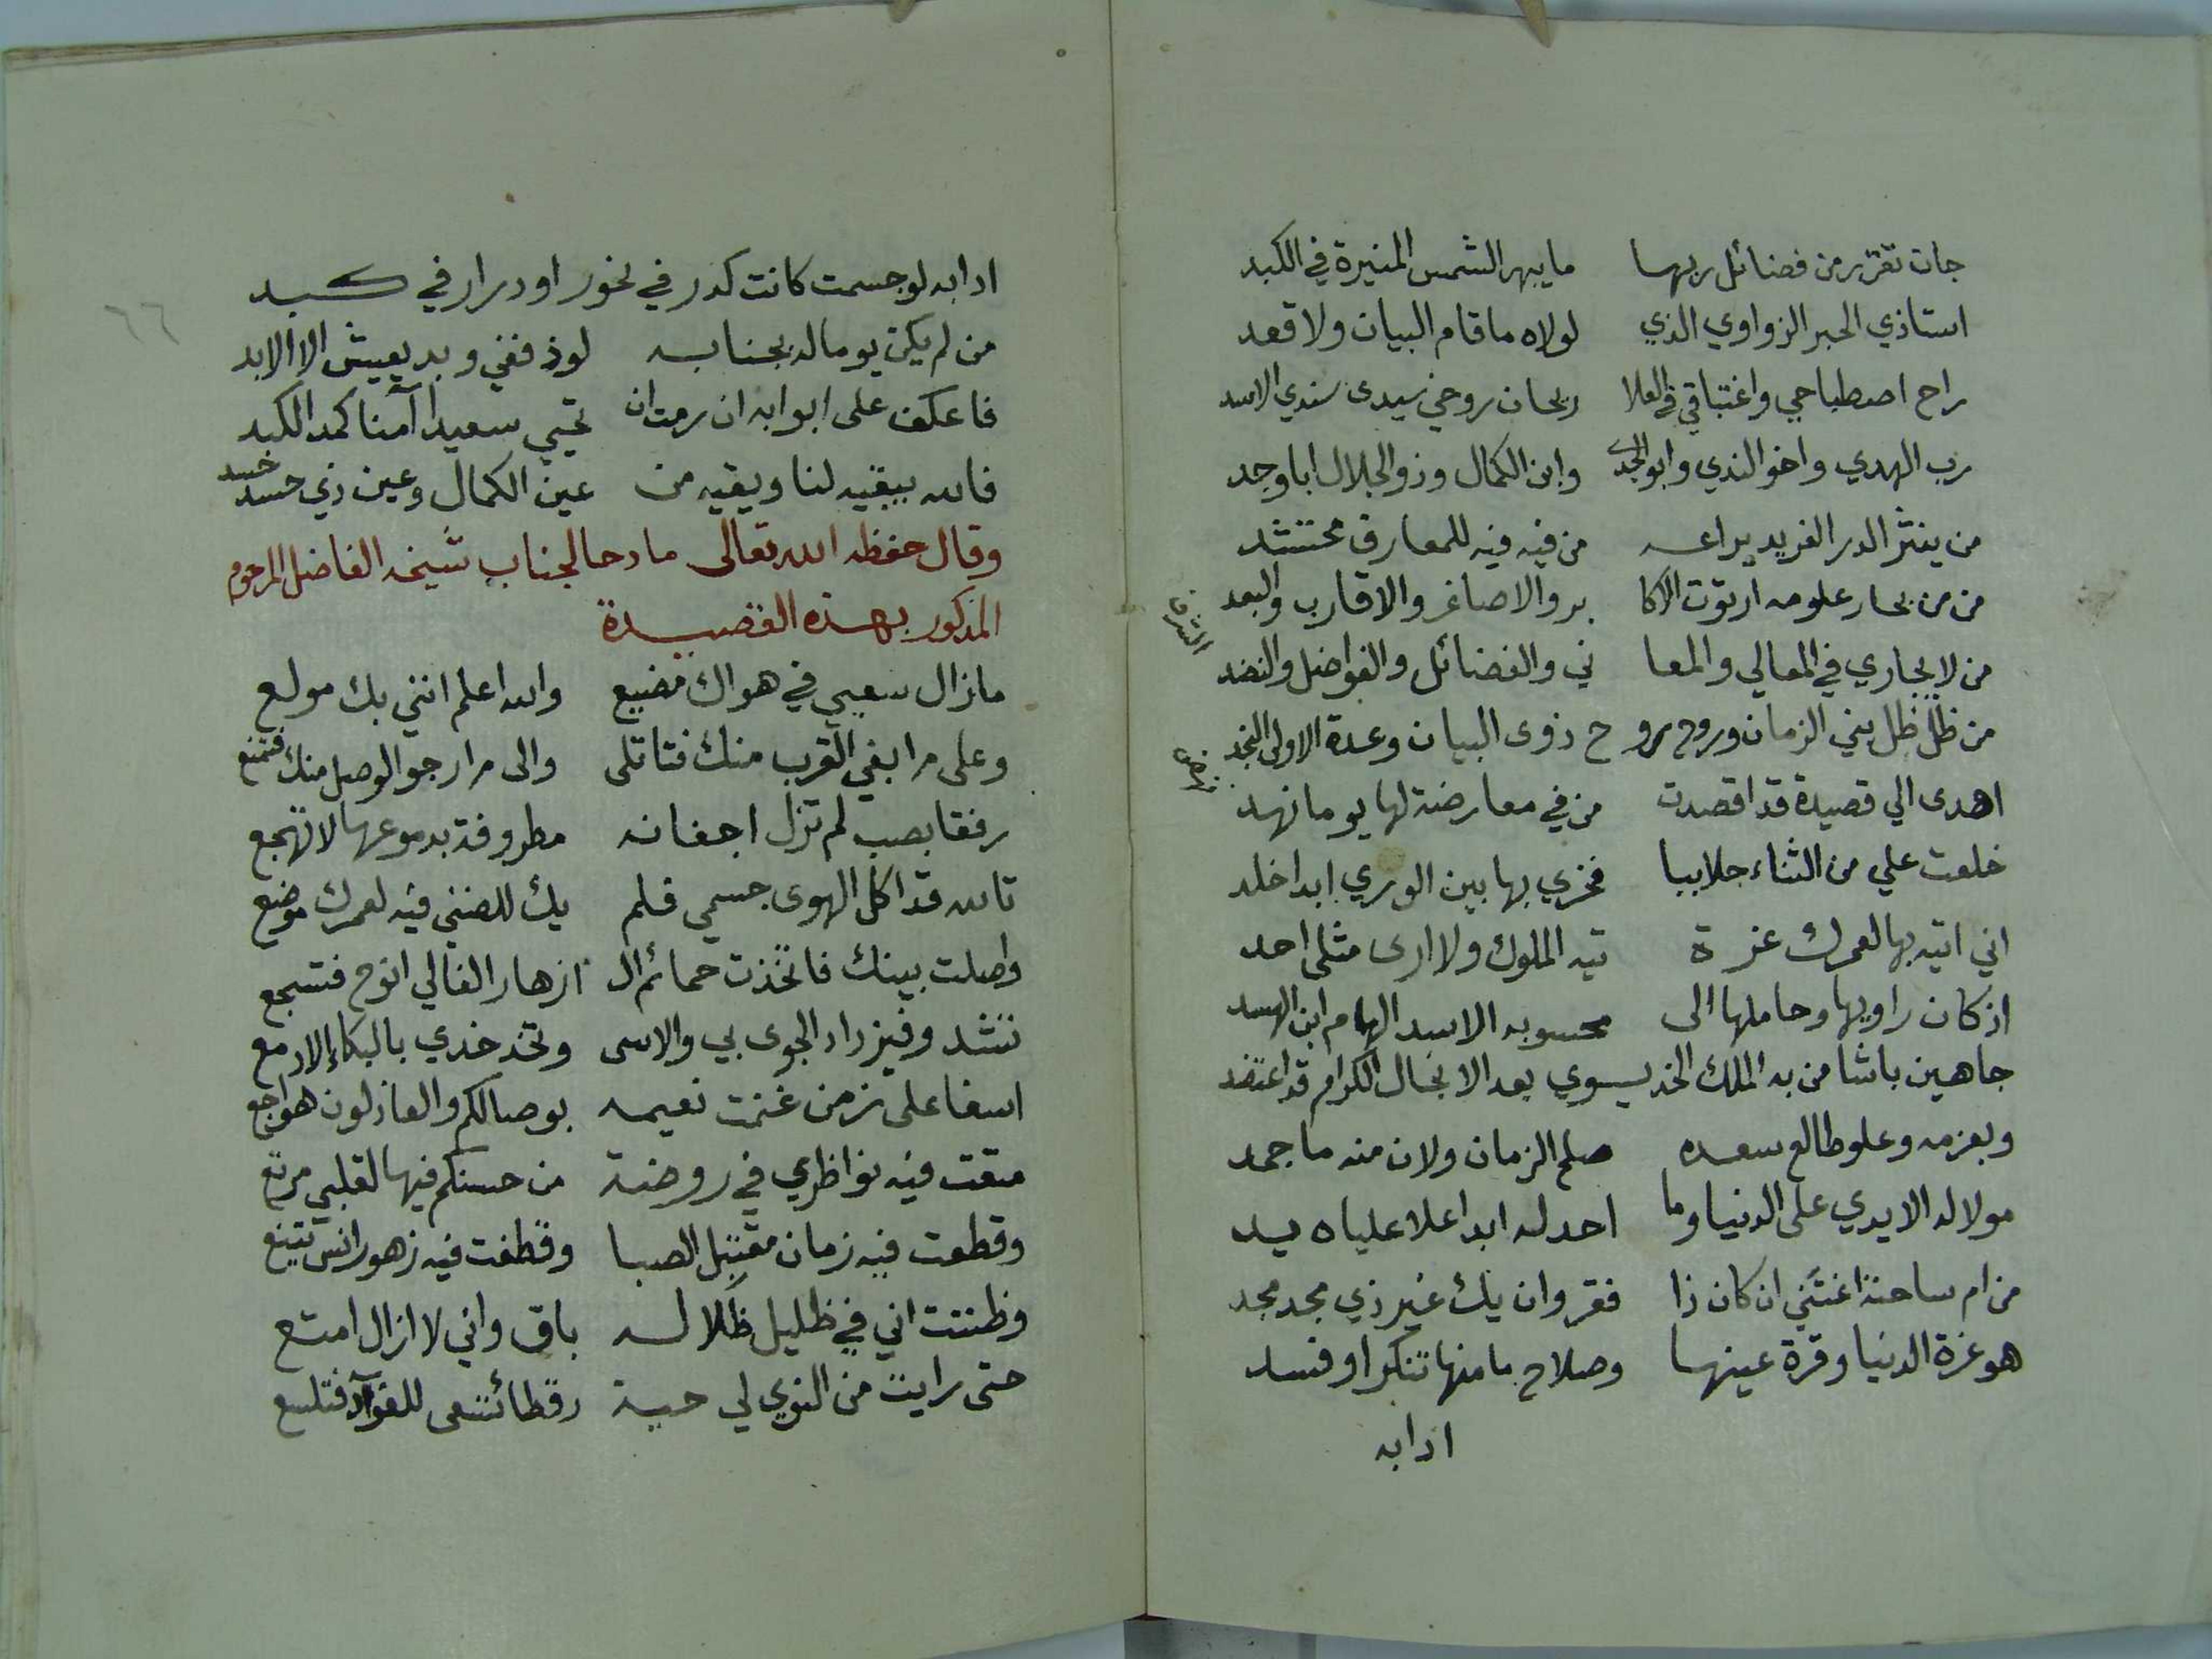 جات تقرر من فضائل ربها مايبهر الشمس المنيرة في الكبد
استاذي الحبر الزواوي الذي لولاه ما قام البيان ولا قعد
راح اصطباحي واغتباقي في العلا ريحان روحي سيدى سندي الاسد
رب الهدي واخو الندي وابو الجدى وابن الكمال وذو الجلال ابا وجد
من ينثر الدر الفريد يراعه من فيه فيه للمعارف محتشد
من من بحار علومه ارتوت الاكا بر والاصاغر والاقارب والبعد
من لا يجاري في المعالي والمعا ني والفضائل والفواضل والنضد
الشرف
من ظل ظل بني الزمان وروح رو ح ذوى البيان وعدة الاولى النجد
اهدى الي قصيدة قد اقصدت من في معارضة لها يوما نهد
خلعت علي من الثناء جلاببا فخزي بها بين الوري ابدا خلد
اني اتيه بها لعمرك عزة تيه الملوك ولا ارى مثلي احد
اذ كان راويها وحاملها الى محسوبه الاسد الهام ابن الهسد
جاهين باشا من به الملك الخديسوي بعد الانجال الكرام قد اعتضد
وبعزمه وعلو طالع سعده صلح الزمان ولان منه ما جمد
مولا له الايدي على الدنيا وما احد له ابدا علا علياه يد
من ام ساحته اغتني ان كان ذا فقر وان يك غير ذي مجد مجد
هو غرة الدنيا وقرة عينها وصلاح ما منها تنكر او فسد
ادابه
٦٦
ادابه لو جسمت كانت كدر في نحور او درار في كبد
من لم يكن يوما له بجنابه لوذ ففي وبد يعيش الا الابد
فاعكف على ابوابه ان رمت ان تحيي سعيدا آمنا كمد الكبد
فالله يبقيه لنا ويقيه من عين الكمال وعين ذي حسد حسد
وقال حفظه الله تعالى مادحا لجناب شيخه الفاضل المرحوم
المذكور بهذه القصيدة
مازال سعيي في هواك مضيع والله اعلم انني بك مولع
وعلى م ابغي القرب منك فتاتلى والى م ارجو الوصل منك فتمنع
رفقا بصب لم تزل اجفانه مطروفة بدموعها لا تهجع
تالله قد اكل الهوى جسمي فلم يك للضنى فيه لعمرك موضع
واصلت بينك فاتخذت حمائم ال ازهار الفالي انوح فتسجع
تشد وفيزداد الجوى بي والاسى وتخد خدي بالبكاء الادمع
اسفا على زمن غنمت نعيمه بوصالكم والعاذلون هواجع
متعت فيه نواظري في روضة من حسنكم فيها لقلبي مرتع
وقطعت فيه زمان مقتبل الصبا وقطفت فيه زهور انس تينع
وظننت اني في ظليل ظلاله باق واني لا ازال امتع
حتى رايت من النوي لي حية رقطا ئتسعى للفوآد فتلسع